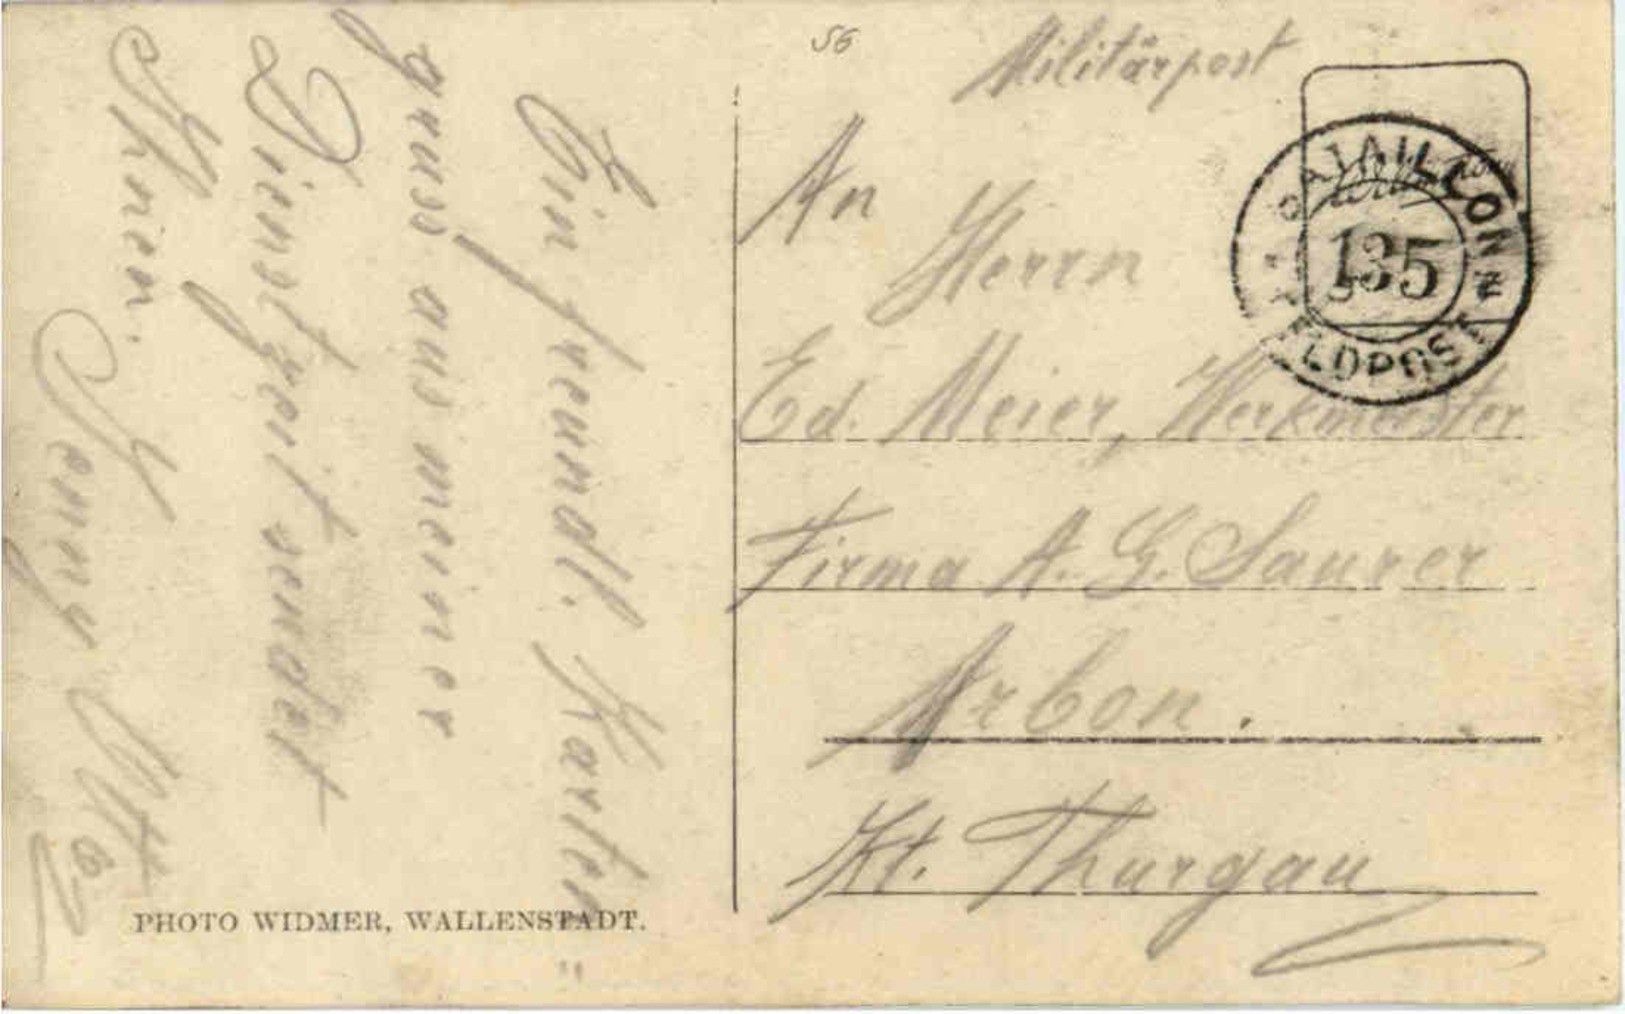 56
Militärpost
An
Herrn
Ed. Meier, Werkmeister
Firma A. G. Saurer
Arbon.
Kt. Thurgau
BATAILLON
135
FELDPOST
Ein freundl. Karten
gruss aus meiner
Dienstzeit sendet
Ihnen.
Jenny
PHOTO WIDMER, WALLENSTADT.